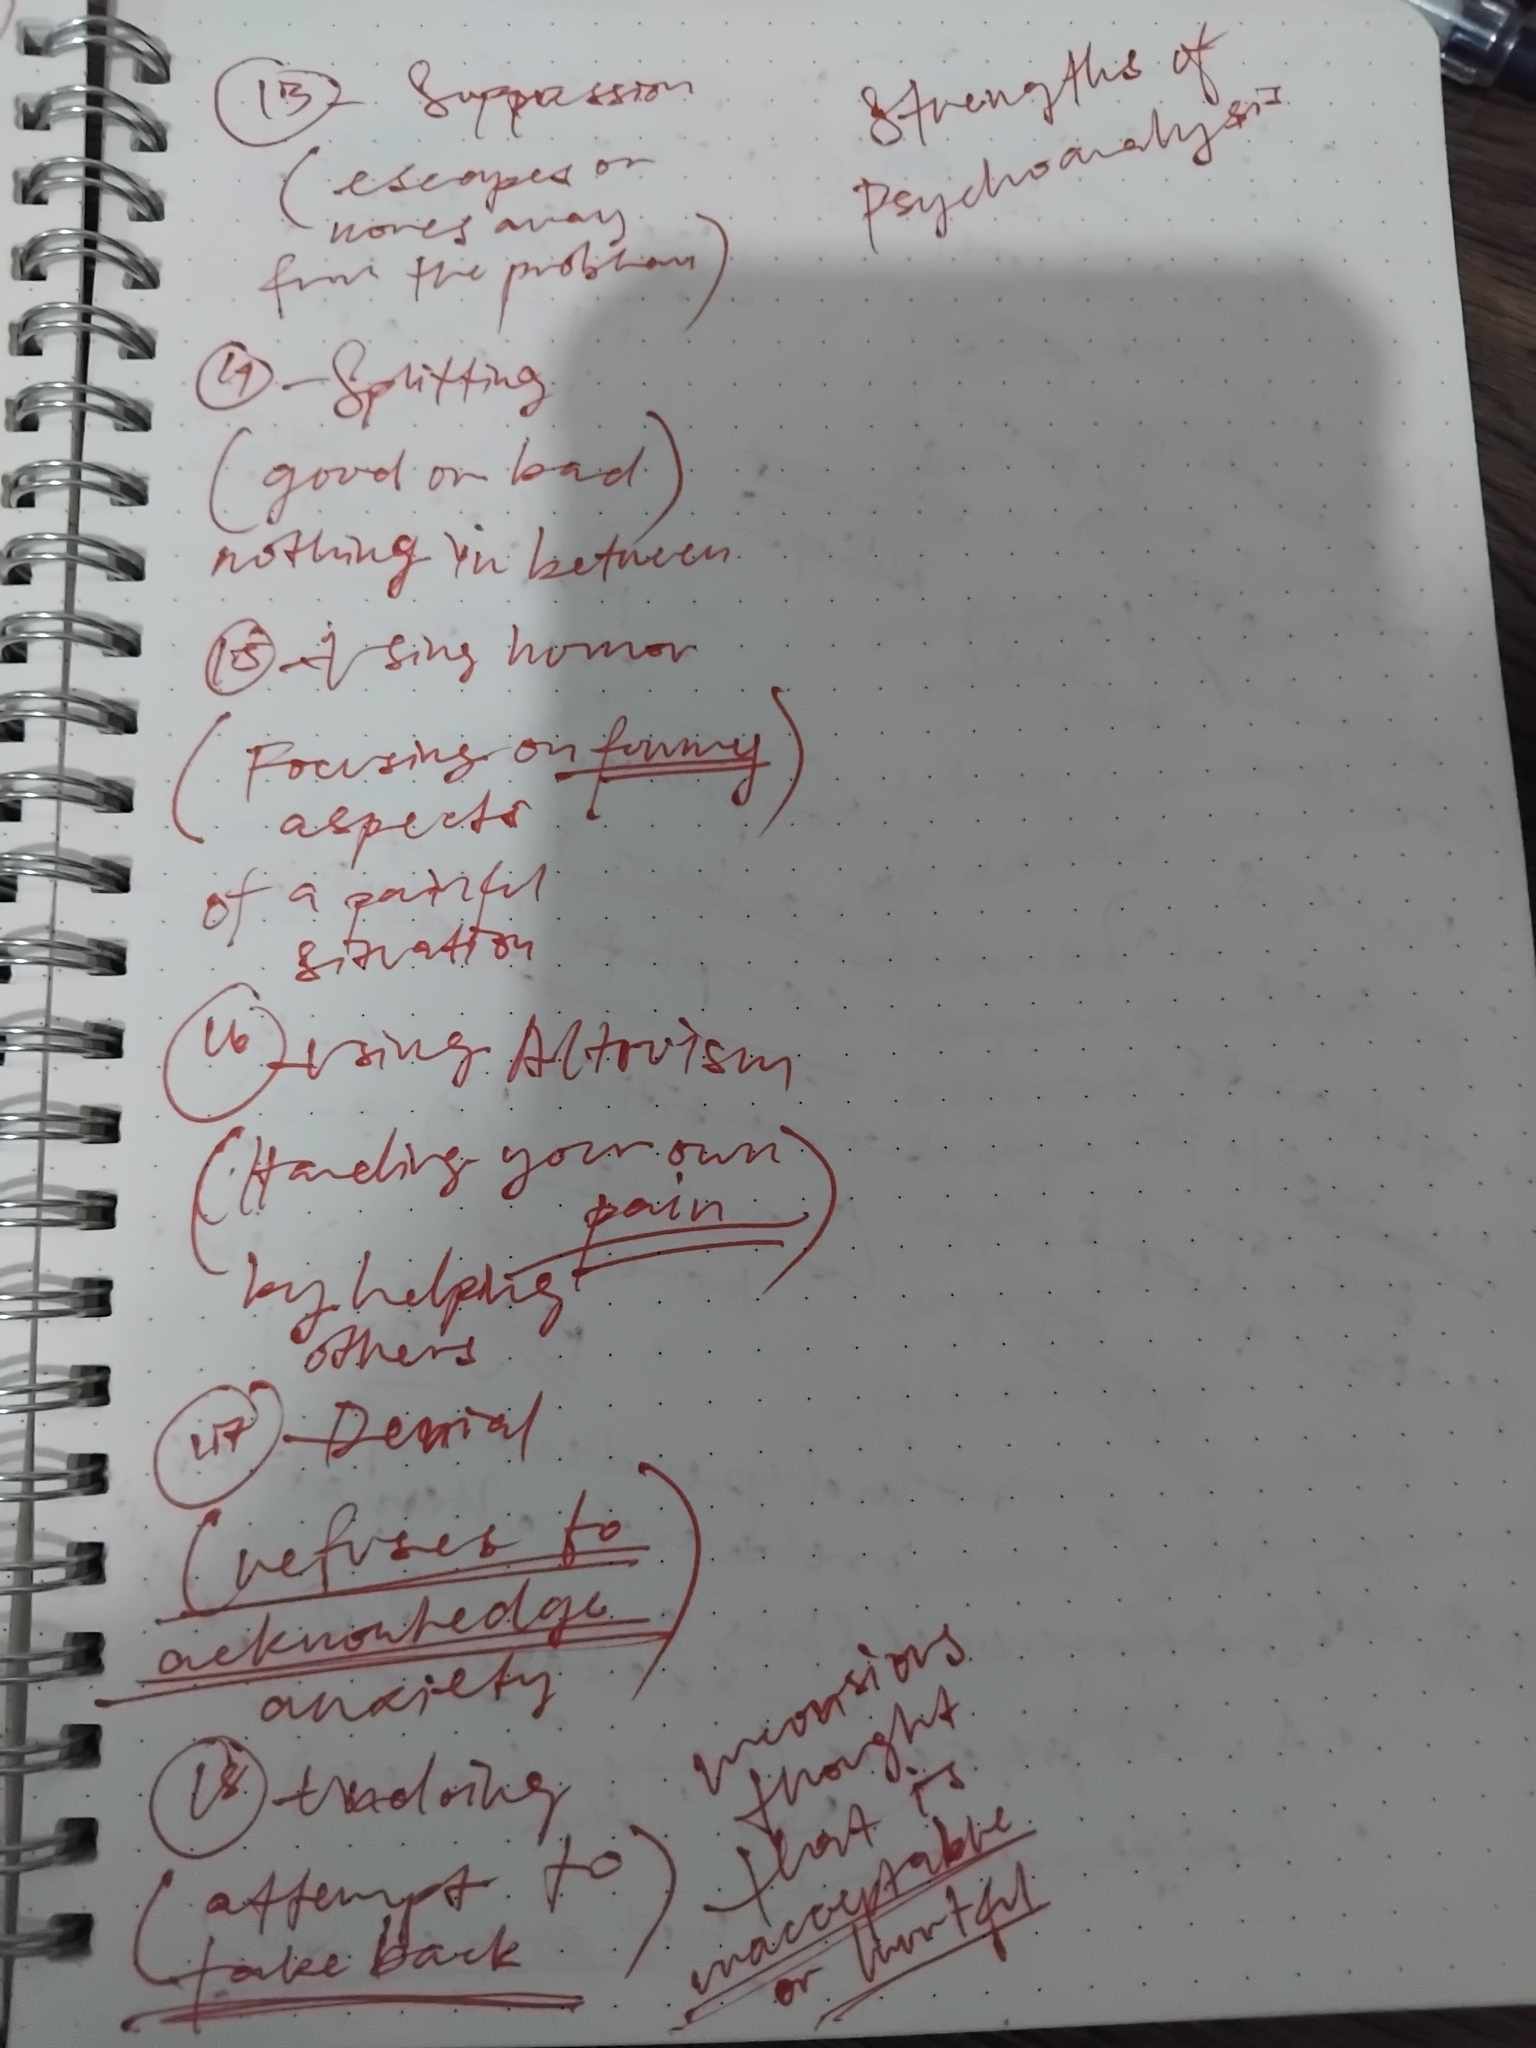 13 - Suppression
(escapes or
moves away
from the problem)
14 - Splitting
(good or bad)
nothing in between
15 - Using humor
(Focusing on funny)
aspects
of a painful
situation
16 - using Altruism
(Handling your own
pain)
by helping
others
17 - Denial
(refuses to
acknowledge)
anxiety
18 - undoing
(attempt to
take back)
thought
that is
unacceptable
or hurtful
Strengths of
Psychoanalysis